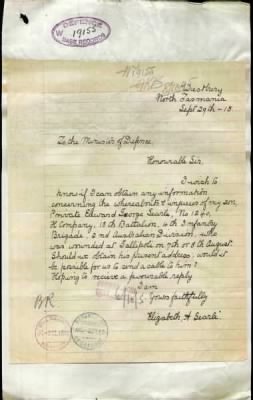 DEFENCE
W 19155
BASE RECORDS
W 19155
Westbury
North Tasmania
Sept 29th - 15.
To the Minister of Defence
Honourable Sir,
I wish to
know if I can obtain any information
concerning the whereabouts & injuries of my son,
Private Edward George Searle, No
H Company, 15th Battalion, 4th Infantry
Brigade, 2nd Australian Division, who
was wounded at Gallipoli on 7th or 8th August.
Should we obtain his present address, would it
be possible for us to send a cable to him?
Hoping to receive a favourable reply
I am
Yours faithfully
Elizabeth A Searle
BR